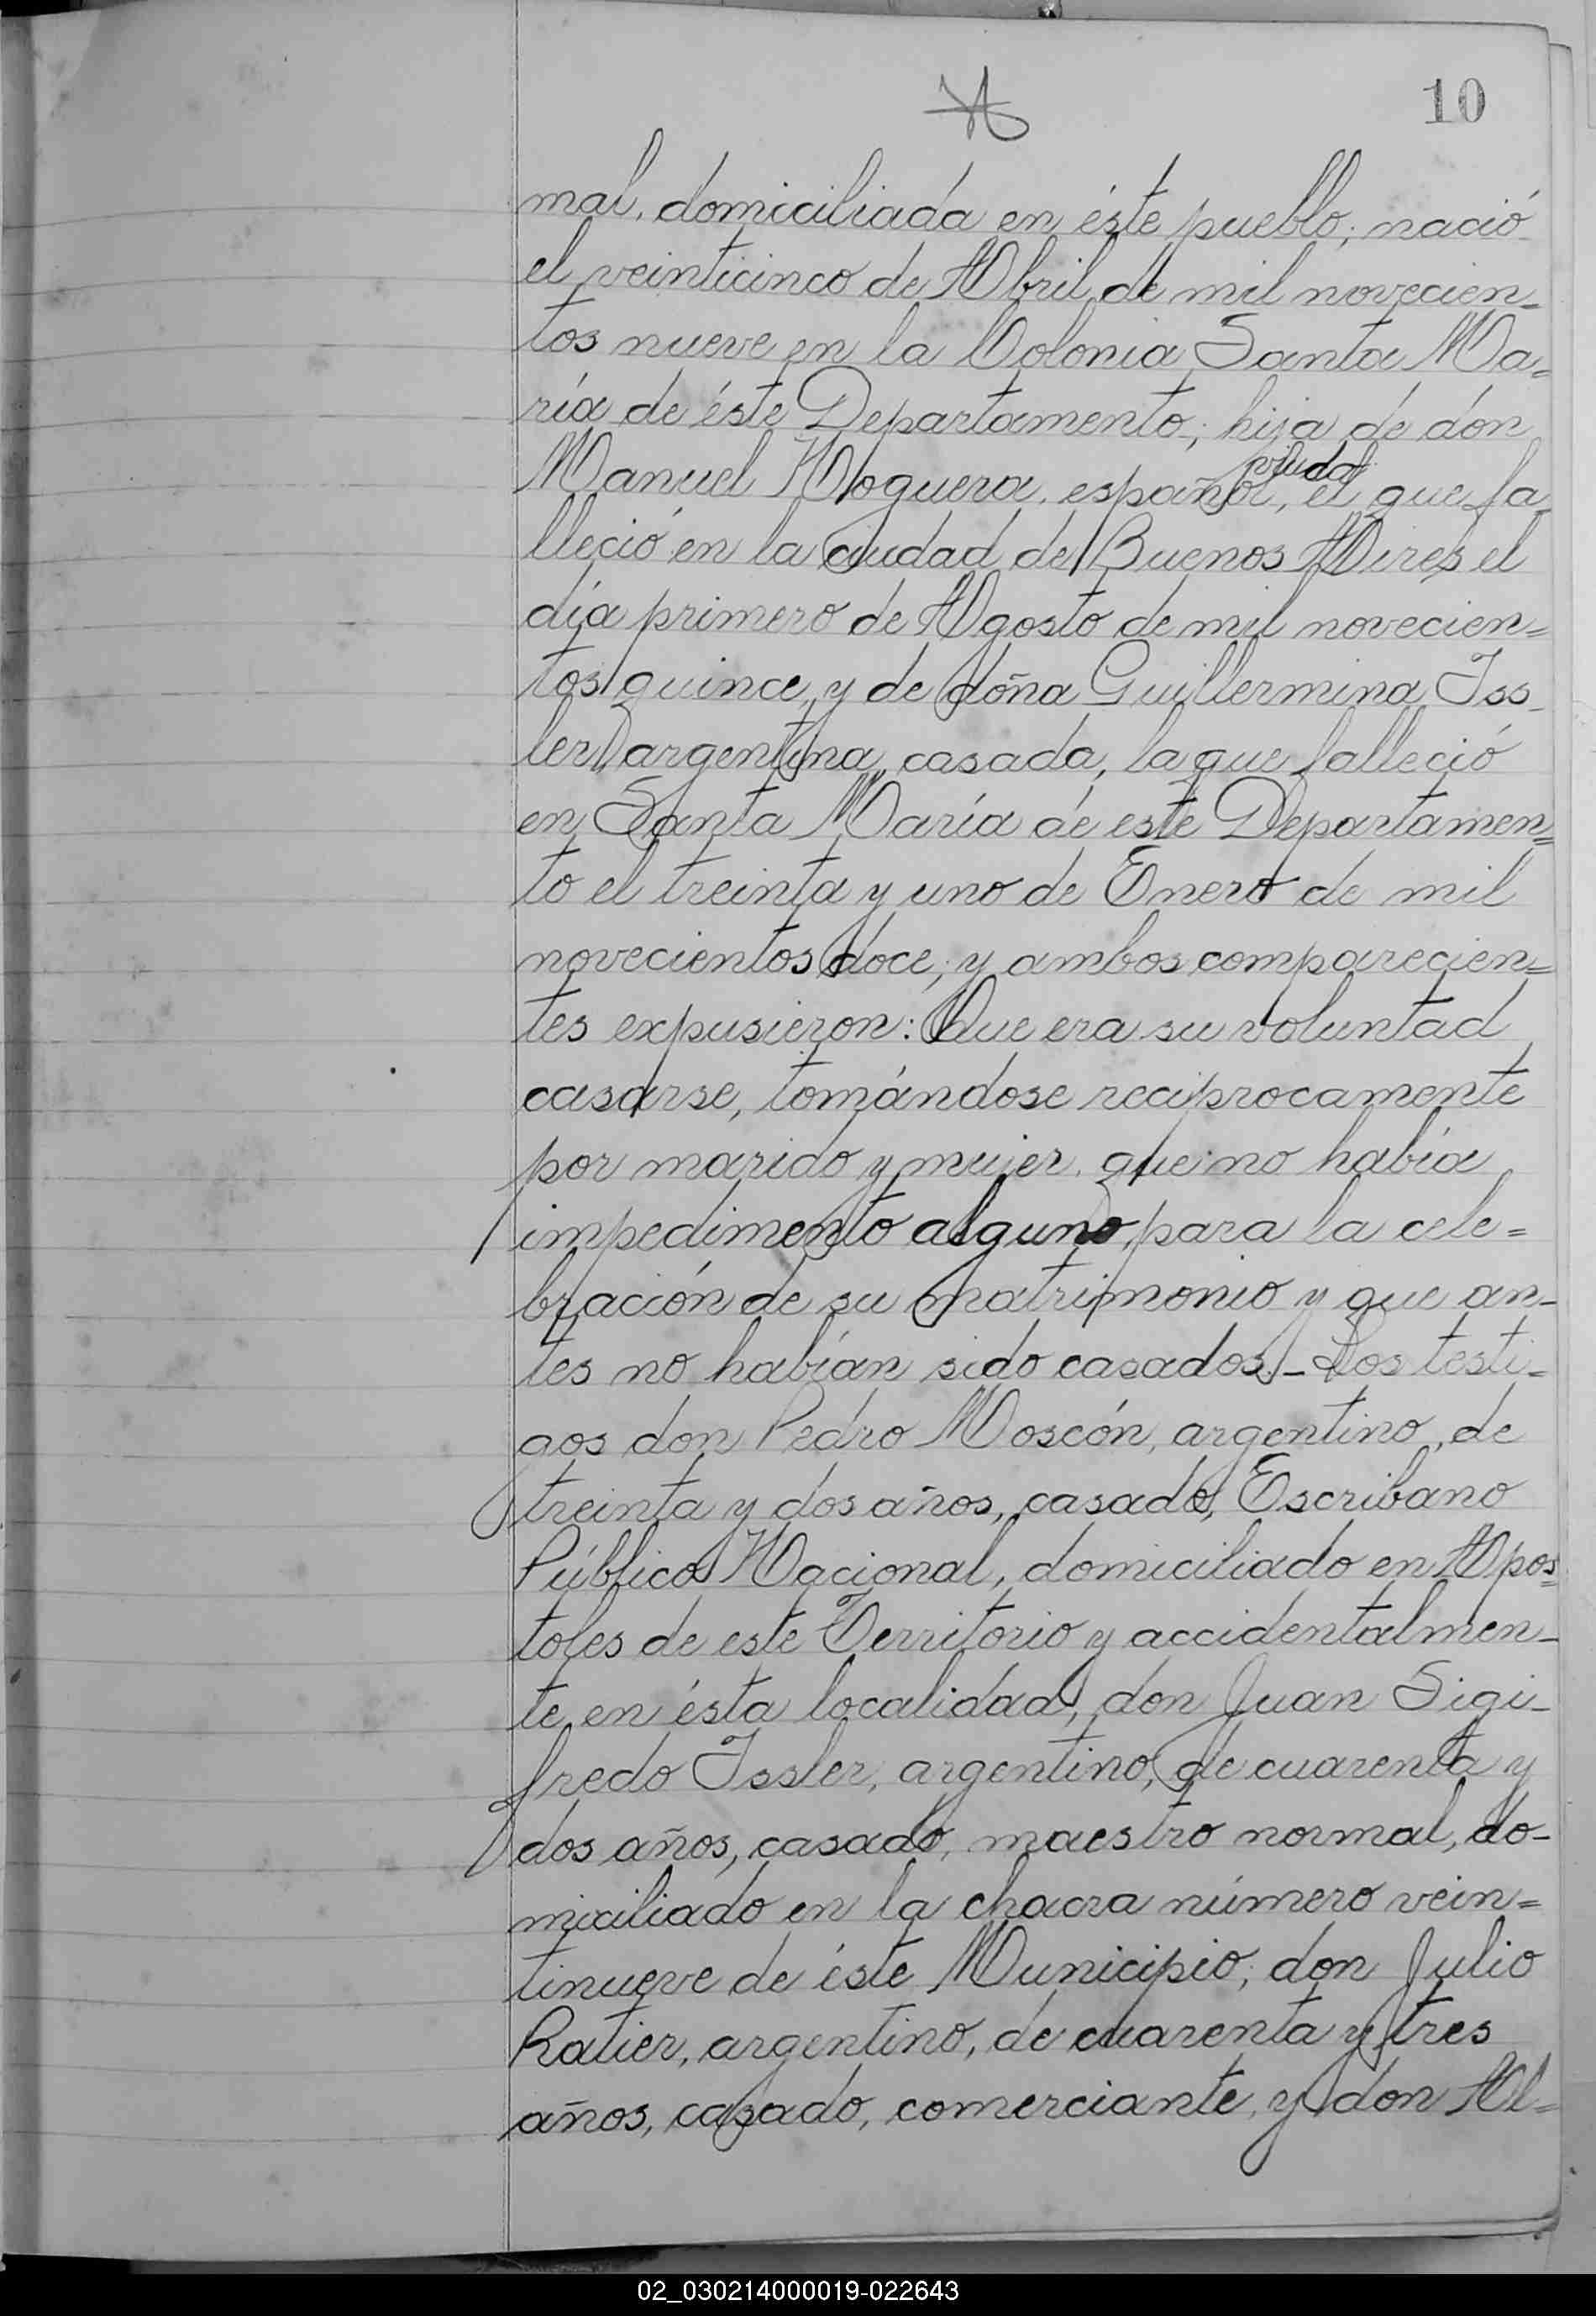 10
mal, domiciliada en éste pueblo; nació
el veinticinco de Abril de mil novecien=
tos nueve en la Colonia Santa Ma=
ría de éste Departamento; hija de don
viudo
Manuel Noguera, español, el que fa
lleció en la ciudad de Buenos Aires el
día primero de Agosto de mil novecien=
tos quince, y de doña Guillermina Iss-
ler, argentina, casada, la que falleció
en Santa María de este Departamen=
to el treinta y uno de Enero de mil
novecientos doce; y ambos comparecien=
tes expusieron: Que era su voluntad
casarse, tomándose reciprocamente
por marido y mujer, que no había
impedimento alguno, para la cele=
bración de su matrimonio y que an-
tes no habían sido casados.- Los testi=
gos don Pedro Moscón, argentino, de
treinta y dos años, casado, Escribano
Público Nacional, domiciliado en Apos=
toles de este Territorio y accidentalmen-
te en ésta localidad, don Juan Sigi-
fredo Issler, argentino, de cuarenta y
dos años, casado, maestro normal, do-
miciliado en la chacra número vein=
tinueve de éste Municipio; don Julio
Ratier, argentino, de cuarenta y tres
años, casado, comerciante, y don Al=
02_030214000019-022643